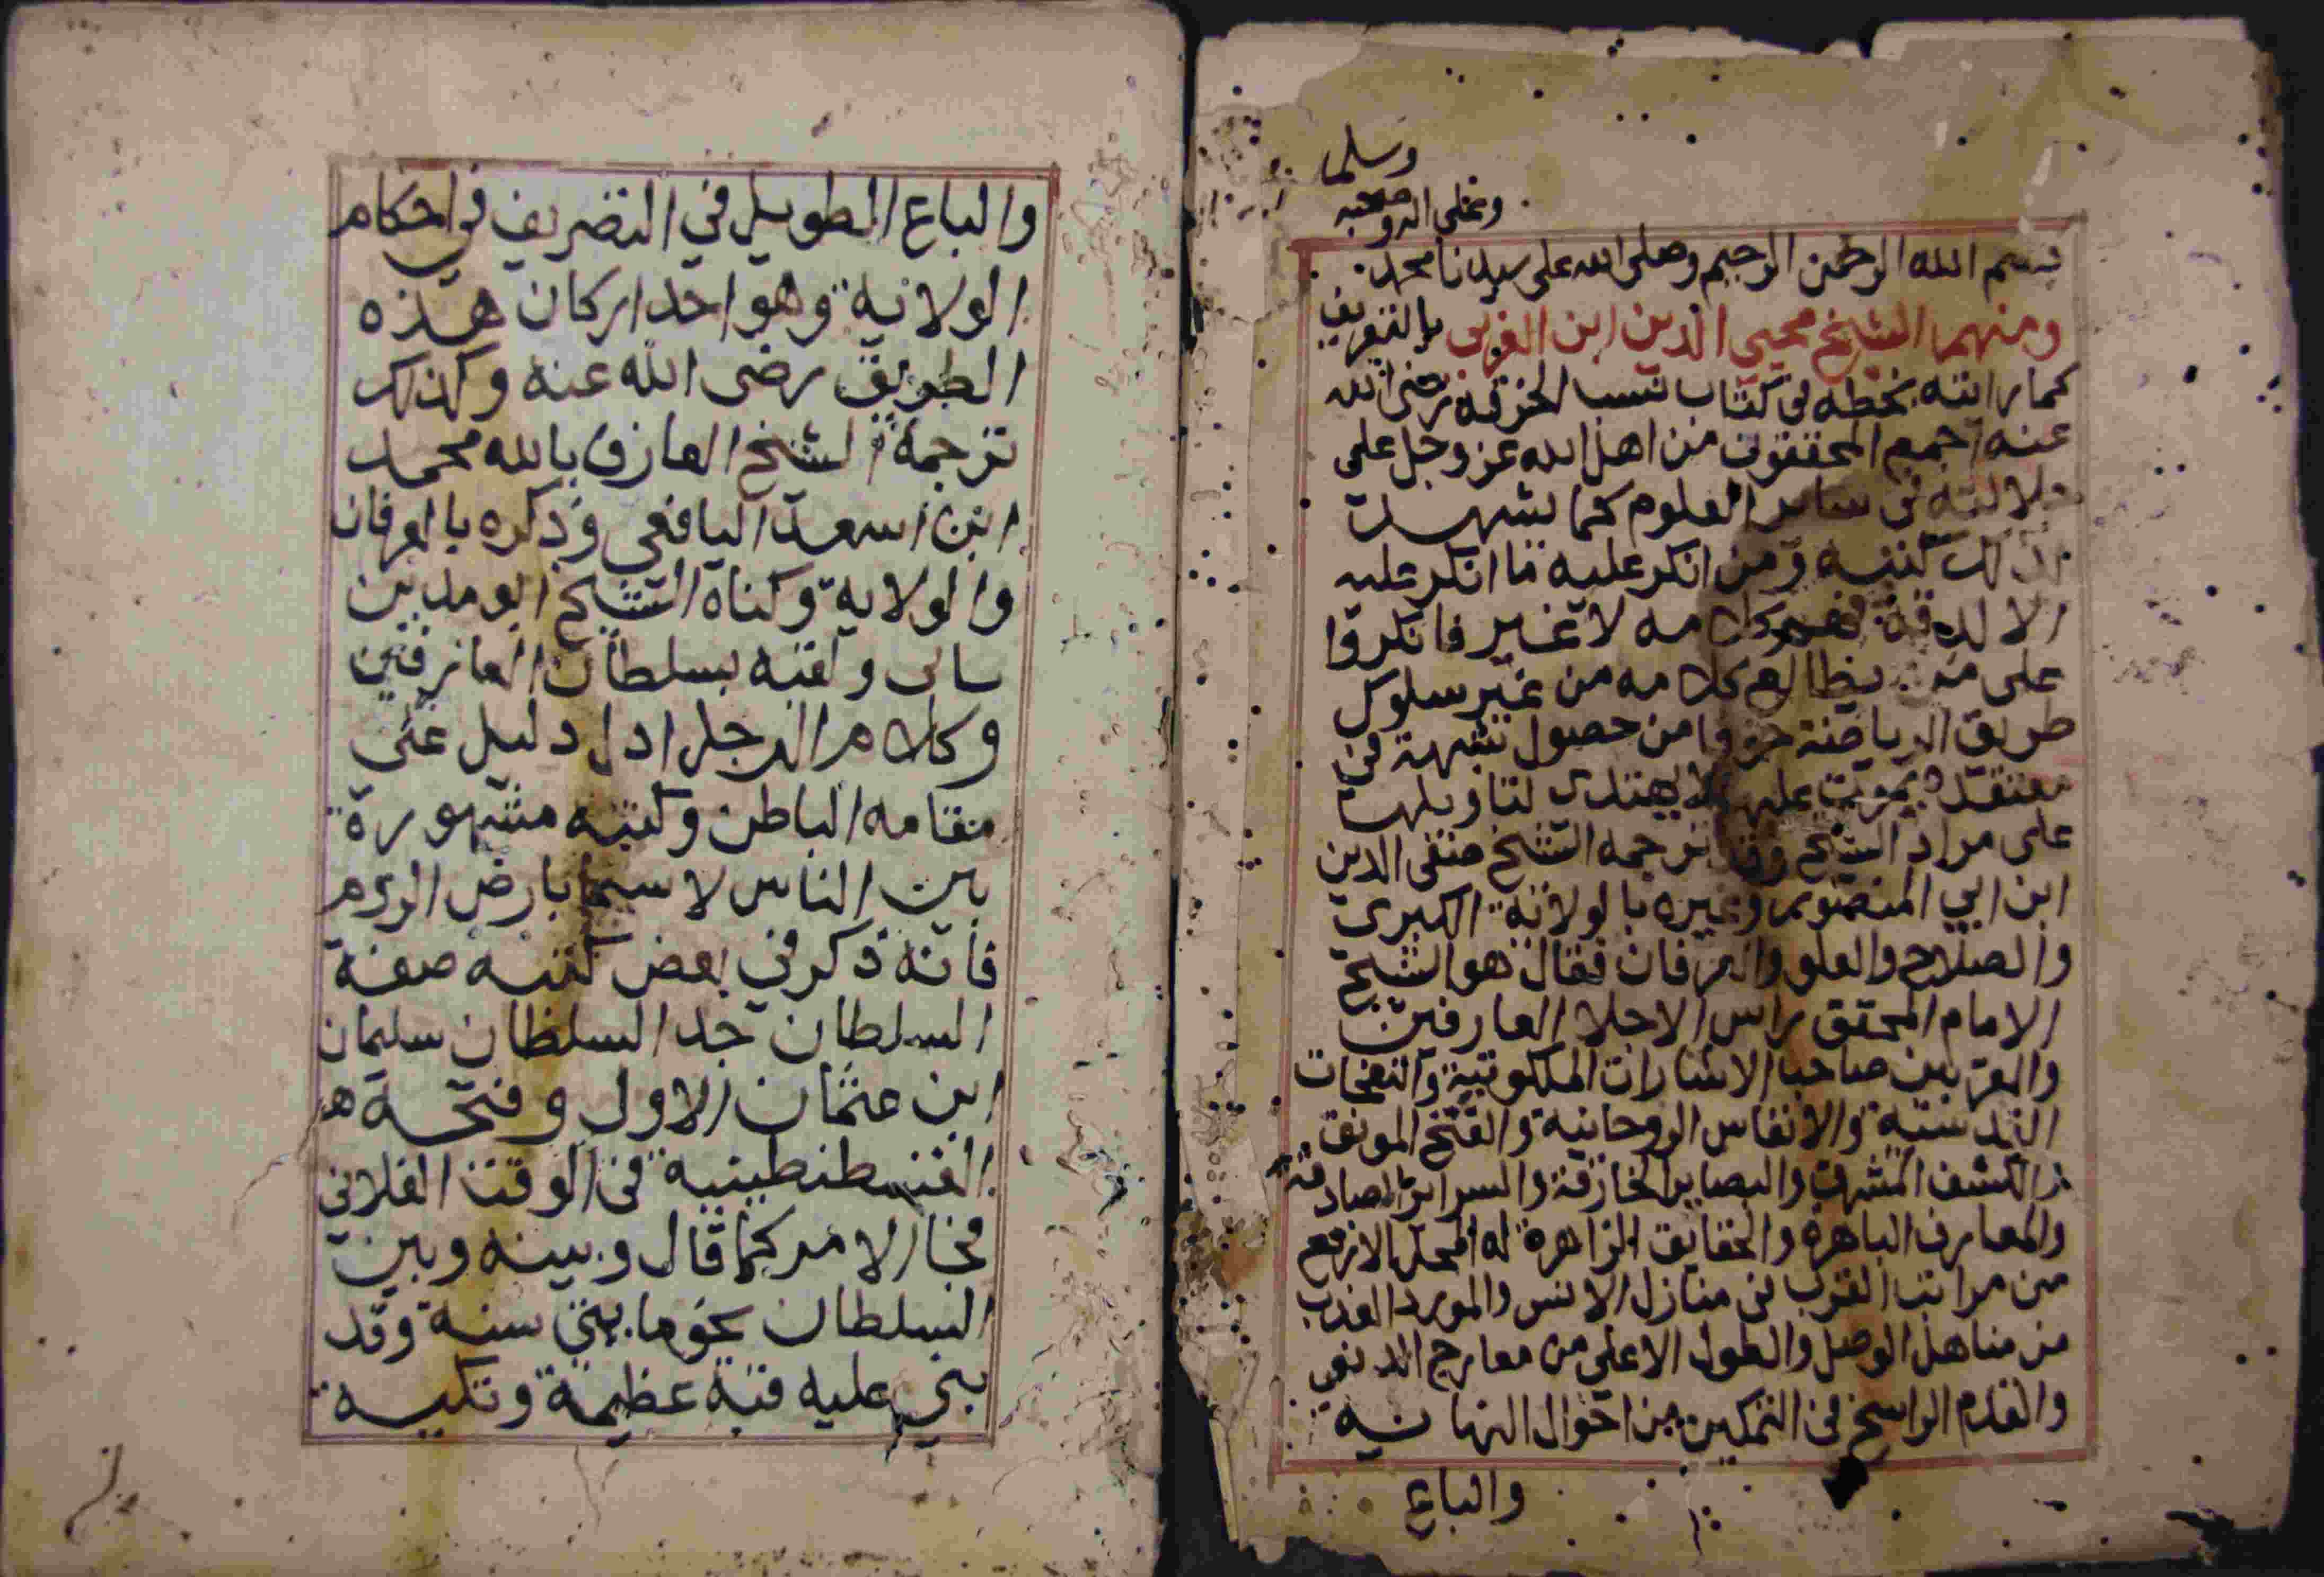 وسلم
وعلى اله وصحبه
بسم الله الرحمن الرحيم وصلى الله على سيدنا محمد
ومنهم الشيخ محيي الدين ابن العربي بالتعريف
كما رايته بخطه في كتاب نسب الخرقة رضي الله
عنه اجمع المحققون من اهل الله عز وجل على
جلالته في ساير العلوم كما يشهد
بذلك كتبه ومن انكر عليه ما انكر عليه
الا لدقة فهم كلامه لا غير فانكروا
على من يطالع كلامه من غير سلوك
طريق الرياضة خوفا من حصول شبهة في
معتقده يموت عليها لا يهتدى لتاويلها
على مراد الشيخ وقد ترجمه الشيخ صفى الدين
ابن ابي المنصور وغيره بالولاية الكبرى
والصلاح والعلو والعرفان فقال هو الشيخ
الامام المحقق راس الاجلا العارفين
والمقربين صاحب الاشارات الملكوتية والنفحات
القدسية والانفاس الروحانية والفتح المونق
والكشف المشرق والبصاير الخارقة والسراير الصادقة
والمعارف الباهرة والحقايق الزاهرة له المحل الارفع
من مراتب القرب في منازل الانس والمورد العذب
من مناهل الوصل والطول الاعلى من معارج الدنو
والقدم الراسخ في التمكين من احوال النهاية
والباع
والباع الطويل في التصريف في احكام
الولاية وهو احد اركان هذه
الطريق رضى الله عنه وكذلك
ترجمة الشيخ العارف بالله محمد
ابن اسعد اليافعي وذكره بالعرفان
والولاية وكناه الشيخ ابو مدين
ولقبه بسلطان العارفين
وكلام الرجل ادل دليل على
مقامه الباطن وكتبه مشهورة
بين الناس لا سيما بارض الروم
فانه ذكر في بعض كتبه صفة
السلطان جد السلطان سليمان
ابن عثمان الاول وفتحه
القسطنطينية في الوقت الفلاني
فجا الامر كما قال وبينه وبين
السلطان نحو مايتي سنة وقد
بني عليه قبة عظيمة وتكية